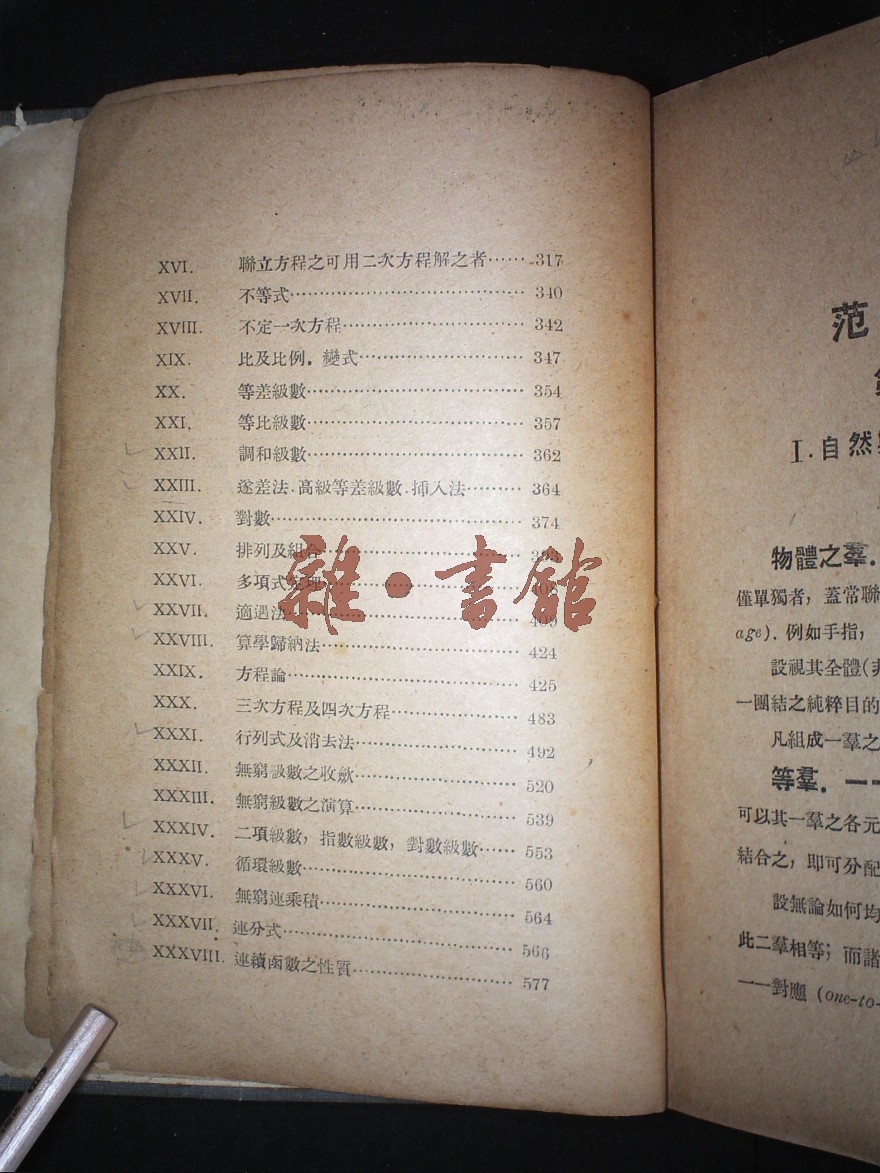 XVI. 聯立方程之可用二次方程解之者······317
XVII. 不等式······340
XVIII. 不定一次方程······342
XIX. 比及比例．變式······347
XX. 等差級數······354
XXI. 等比級數······357
XXII. 調和級數······362
XXIII. 遞差法．高級等差級數．挿入法······364
XXIV. 對數······374
XXV. 排列及組合······393
XXVI. 多項式定理······
XXVII. 適遇法······409
XXVIII. 算學歸納法······424
XXIX. 方程論······425
XXX. 三次方程及四次方程······483
XXXI. 行列式及消去法······492
XXXII. 無窮級數之收歛······520
XXXIII. 無窮級數之演算······539
XXXIV. 二項級數，指數級數，對數級數······553
XXXV. 循環級數······560
XXXVI. 無窮連乘積······564
XXXVII. 連分式······566
XXXVIII. 連續函數之性質······577
雜·書館
范
I.自然
物體之羣．
僅單獨者，蓋常聯
age). 例如手指，
設視其全體(
一團結之純粹目的
凡組成一羣之
等羣．一
可以其一羣之各元
結合之，即可分配
設無論如何均
此二羣相等；而諸
一一對應 (one-to-